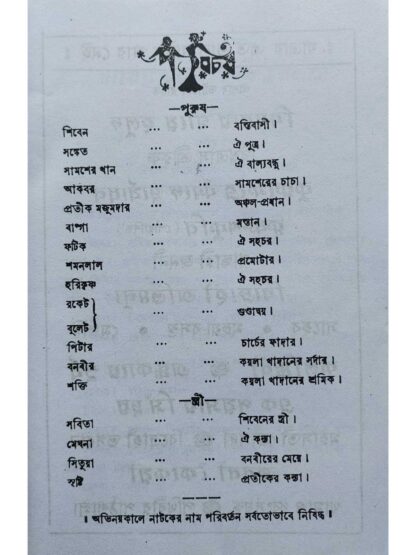 পরিচয়
—পুরুষ—
শিবেন ... ... বস্তিবাসী।
সঙ্কেত ... ... ঐ পুত্র।
সামশের খান ... ... ঐ বাল্যবন্ধু।
আকবর ... ... সামশেরের চাচা।
প্রতীক মজুমদার ... ... অঞ্চল-প্রধান।
বাপ্পা ... ... মস্তান।
ফটিক ... ... ঐ সহচর।
শমনলাল ... ... প্রমোটার।
হরিকৃষ্ণ ... ... ঐ সহচর।
রকেট
বুলেট } ... ... গুণ্ডাদ্বয়।
পিটার ... ... চার্চের ফাদার।
বনবীর ... ... কয়লা খাদানের সর্দার।
শক্তি ... ... কয়লা খাদানের শ্রমিক।
—স্ত্রী—
সবিতা ... ... শিবেনের স্ত্রী।
মেঘনা ... ... ঐ কন্যা।
সিতুয়া ... ... বনবীরের মেয়ে।
সৃষ্টি ... ... প্রতীকের কন্যা।
। অভিনয়কালে নাটকের নাম পরিবর্তন সর্বতোভাবে নিষিদ্ধ।